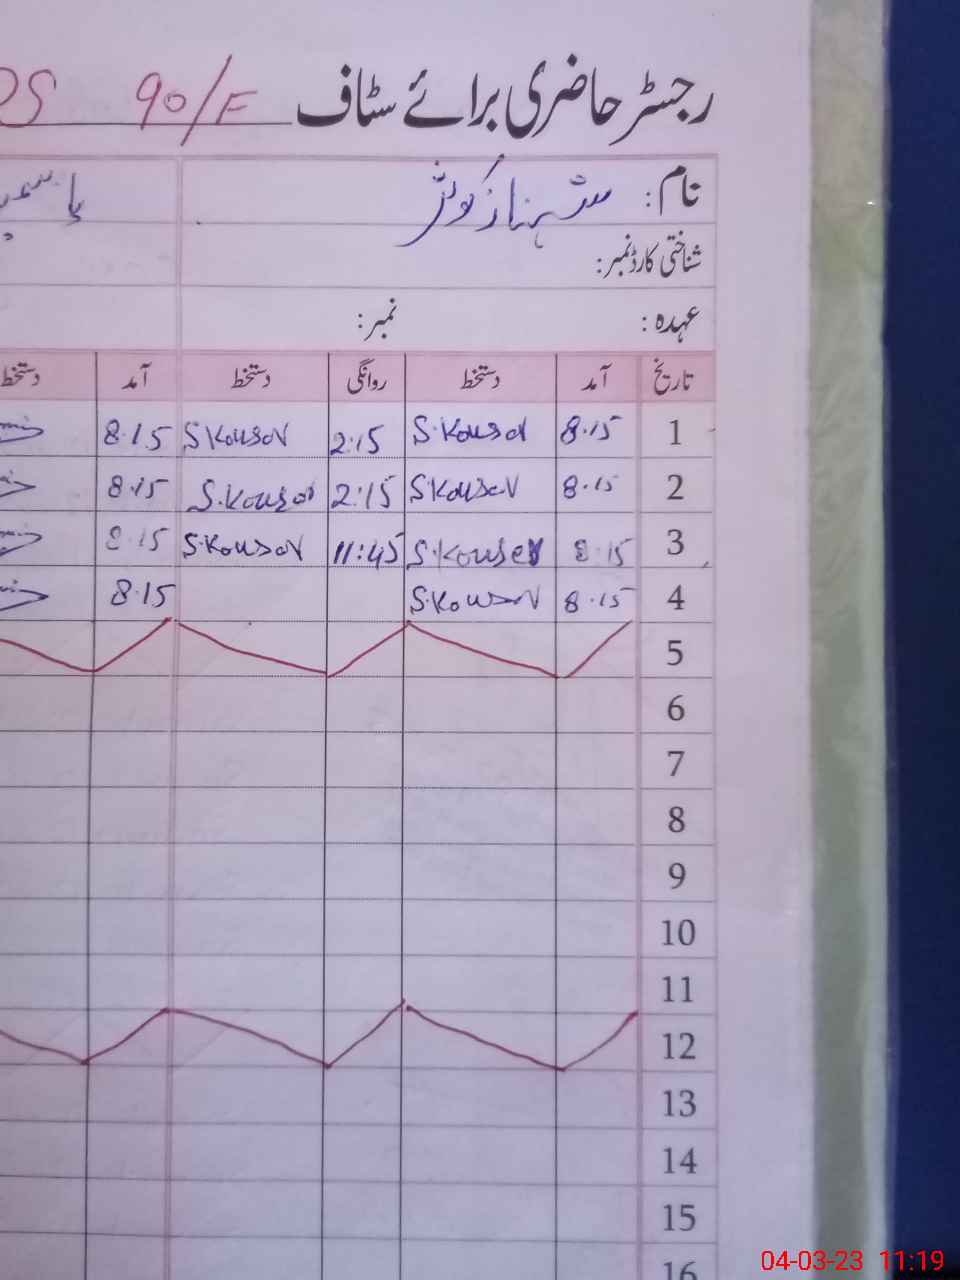 رجسٹر حاضری برائے سٹاف 90/F
نام: شہناز کوثر
شناختی کارڈ نمبر:
عہدہ: نمبر:
تاریخ آمد دستخط روانگی دستخط آمد دستخط
1 8.15 S.Kousar 2:15 S Kousar 8.15
2 8.15 S Kousar 2:15 S.Kousar 8.15
3 8.15 S.Kouser 11:45 S.Kousar 8.15
4 8.15 S.Kousar 8.15
5
6
7
8
9
10
11
12
13
14
15
16
04-03-23 11:19